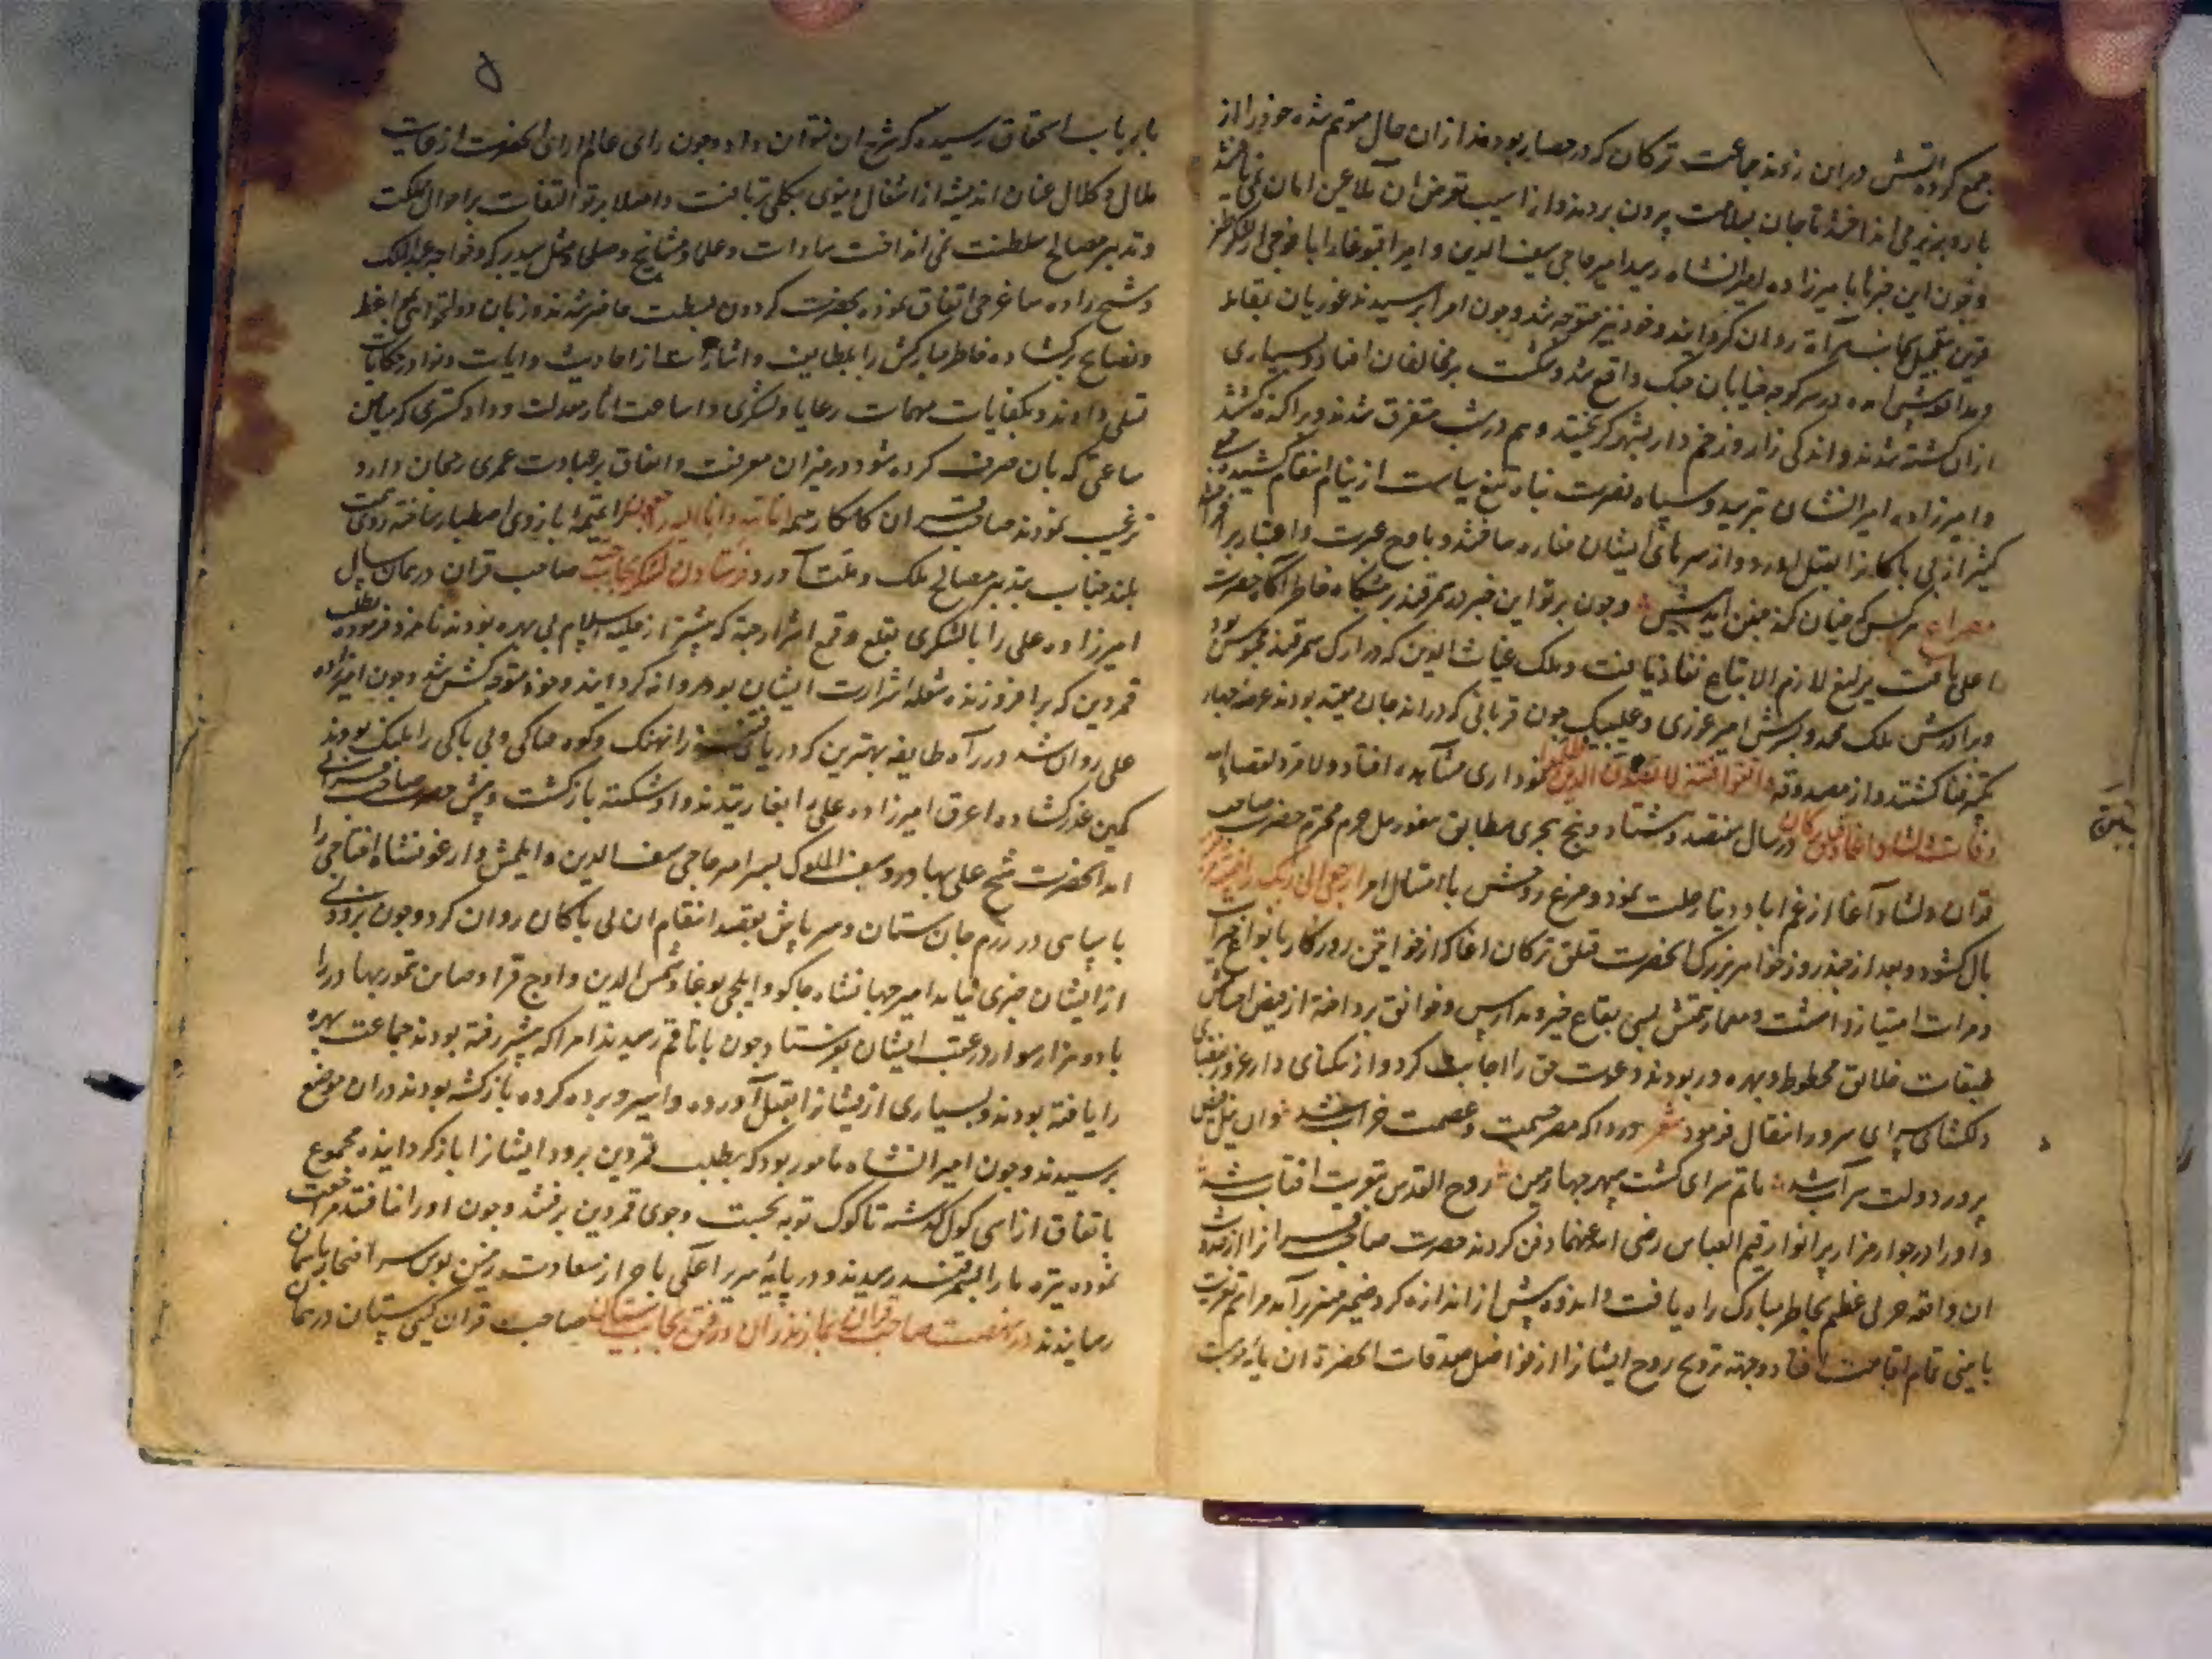 جمع کرده آتش در این زدند جماعت ترکان که در حصار بودند از آن حال متوهم شده خود را از
بارو بزیر می انداختند تا جان بسلامت بیرون برند و از آسیب تعرض آن ملاعین امان نمی یافتند
و چون این خبر با میرزاده امیرانشاه رسید امیر حاجی سیف الدین و امیر اقبوغا را با فوجی از لشکر ظفر
قرین بتعجیل بجانب هراة روان گردانید و خود نیز متوجه شد و چون امرا برسیدند غوریان بمقابله
و مدافعه پیش آمده در سر کوچه خیابان جنگ واقع شد و شکست بر مخالفان افتاد و بسیاری
از آن کشته شدند و اندکی زار و زخم دار بشهر گریختند و هم در شب متفرق شدند و پراکنده گشتند
و امیرزاده امیرانشاه برسید و سپاه نصرت پناه تیغ سیاست از نیام انتقام کشیدند و جمعی
کثیر از بی باکانرا بقتل آورد و از سرهای ایشان مناره ساختند و باوج عبرت و اعتبار بر افراختند
مصراع هر کس که چنان کند چنین آیدش پیش و چون پرتو این خبر در سمرقند بر مشکاه خاطر آگاه حضرت
اعلی یافت یرلیغ لازم الاتباع نفاذ یافت و ملک غیاث الدین که در ارک سمرقند محبوس بود
و برادرش ملک محمد و پسرش امیر غوری و علیبیک جون قربانی که در اندجان مقید بودند عرضه جهان
فنا گشتند و از مصدوقه واتقوا فتنة لا تصیبن الذین ظلموا نموداری مشاهده افتاد و لا مرد لقضا الله
وفات دلشاد آغا و قتلق ترکان در سال هفتصد و هشتاد و پنج هجری مطابق حرم محترم حضرت صاحب
قران دلشاد آغا از غم اباد دنیا رحلت نمود و مرغ روحش باامتثال امر ارجعی الی ربک راضیة مرضیة
بال گشود و بعد از چند روز خواهر بزرگ آنحضرت قتلق ترکان آغا که از خواتین روزگار بانواع خیرات
و مبرات امتیاز داشت و معمار همتش بسی بقاع خیر و مدارس و خوانق پرداخته از فیض احسانش
طبقات خلایق محظوظ و بهره ور بودند دعوت حق را اجابت کرد و از تنگنای دار غرور بفضای
دلگشای سرای سرور انتقال فرمود شعر دردا که مصر حشمت و عصمت خراب شد وان نیل فیض
پرور دولت سراب شد ماتم سرای گشت سپهر چهارمین روح القدس بتعزیت آفتاب شد
و او را در جوار مزار پر انوار قثم العباس رضی الله عنهما دفن کردند حضرت صاحب قران را از حدوث
آن واقعه هولی عظیم بخاطر مبارک راه یافت و اندوه بیش از اندازه گرد ضمیر منیر برآمد مراسم تعزیت
بآیینی تمام اقامت افتاد و جهته ترویح روح ایشانرا از فواضل صدقات آنحضرة آن پایه مرتبت
۵
بارباب استحقاق رسید که شرح آن نتوان داد و چون رای عالم آرای آنحضرت از غایت
ملال و کلال عنان اندیشه از اشغال دنیوی بکلی برتافت و اصلا پرتو التفات بر احوال مملکت
و تدبیر مصالح سلطنت نمی انداخت سادات و علما و مشایخ و صلحا مثل سید برکه و خواجه عبدالملک
و شیخ زاده ساغرجی اتفاق نموده بحضرت گردون بسطت حاضر شدند و زبان دولتخواهی بمواعظ
و نصایح برگشاده خاطر مبارکش را بلطایف و اشارات از احادیث و ایات و نوادر حکایات
تسلی دادند و بکفایات مهمات رعایا و لشکری و اساعت اثار معدلت و داد گستری که بیامن
ساعتی که بان صرف کرده شود در میزان معرفت و اتفاق بر عبادت عمری رجحان دارد
ترغیب نمودند صاحب قران کامکار حمیة انا لله و انا الیه راجعون را تمیمه بازوی اصطبار ساخته روی همت
بلند جناب بتدبیر مصالح ملک و ملت آورد فرستادن لشکر بجانب جته صاحب قران در همان سال
امیرزاده علی را با لشکری بقلع و قمع اشرار جته که بیشتر از حلیه اسلام بی بهره بودند نامزد فرموده بطلب
قمردین که برافروزنده شعله شرارت ایشان بود روانه گردانید و خود متوجه کش شد و چون امیرزاده
علی روان شد در راه طایفه بهرین که دریای فتنه را نهنگ و کوه هتاکی و بی باکی را پلنگ بودند
کمین غدر گشاده اعرق امیرزاده علی را بغاریتدند و او شکسته بازگشت و پیش حضرت صاحب قرانی
آمد آنحضرت شیخ علی بهادر و سیف الملوک پسر امیر حاجی سیف الدین و ایلمش و ارغونشاه اختاجی را
با سپاهی در رزم جان ستان و سر پاش بقصد انتقام آن بی باکان روان کرد و چون بزودی
از ایشان خبری نیامد امیر جهانشاه جاکو و ایلچی بوغا و شمس الدین و اوج قرا و صاین تمور بهادر را
با دو هزار سوار در عقب ایشان بفرستاد و چون باتاقم رسیدند امرا که پیشتر رفته بودند جماعت بهرین
را یافته بودند و بسیاری از یشانرا بقتل آورده و اسیر و برده کرده بازگشته بودند در آن موضع
برسیدند و چون امیر جهانشاه مامور بود که بطلب قمردین برود ایشانرا بازگردانیده مجموع
باتفاق از اسی کول گذشته تا کوک توبه بجست وجوی قمردین برفتند و چون او را نیافتند مراجعت
نموده بسمرقند رسیدند و در پایه سریر اعلی باحراز سعادت زمین بوس سر افتخار بآسمان
رسانیدند ذکر نهضت صاحب قران بمازندران و رفتن بجانب سیستان صاحب قران گیتی ستان در همان